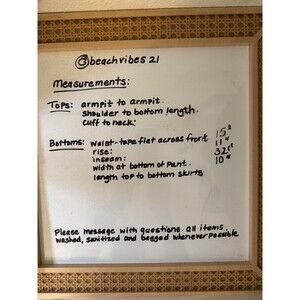 @beachvibes 21
Measurements:
Tops: armpit to armpit.
shoulder to bottom length.
cuff to neck:
Bottoms: waist-tape flat across front 15"
rise: 11"
inseam: 32"
width at bottom of pant. 10"
length top to bottom skirts
Please message with questions. all items
washed, sanitized and bagged whenever possible